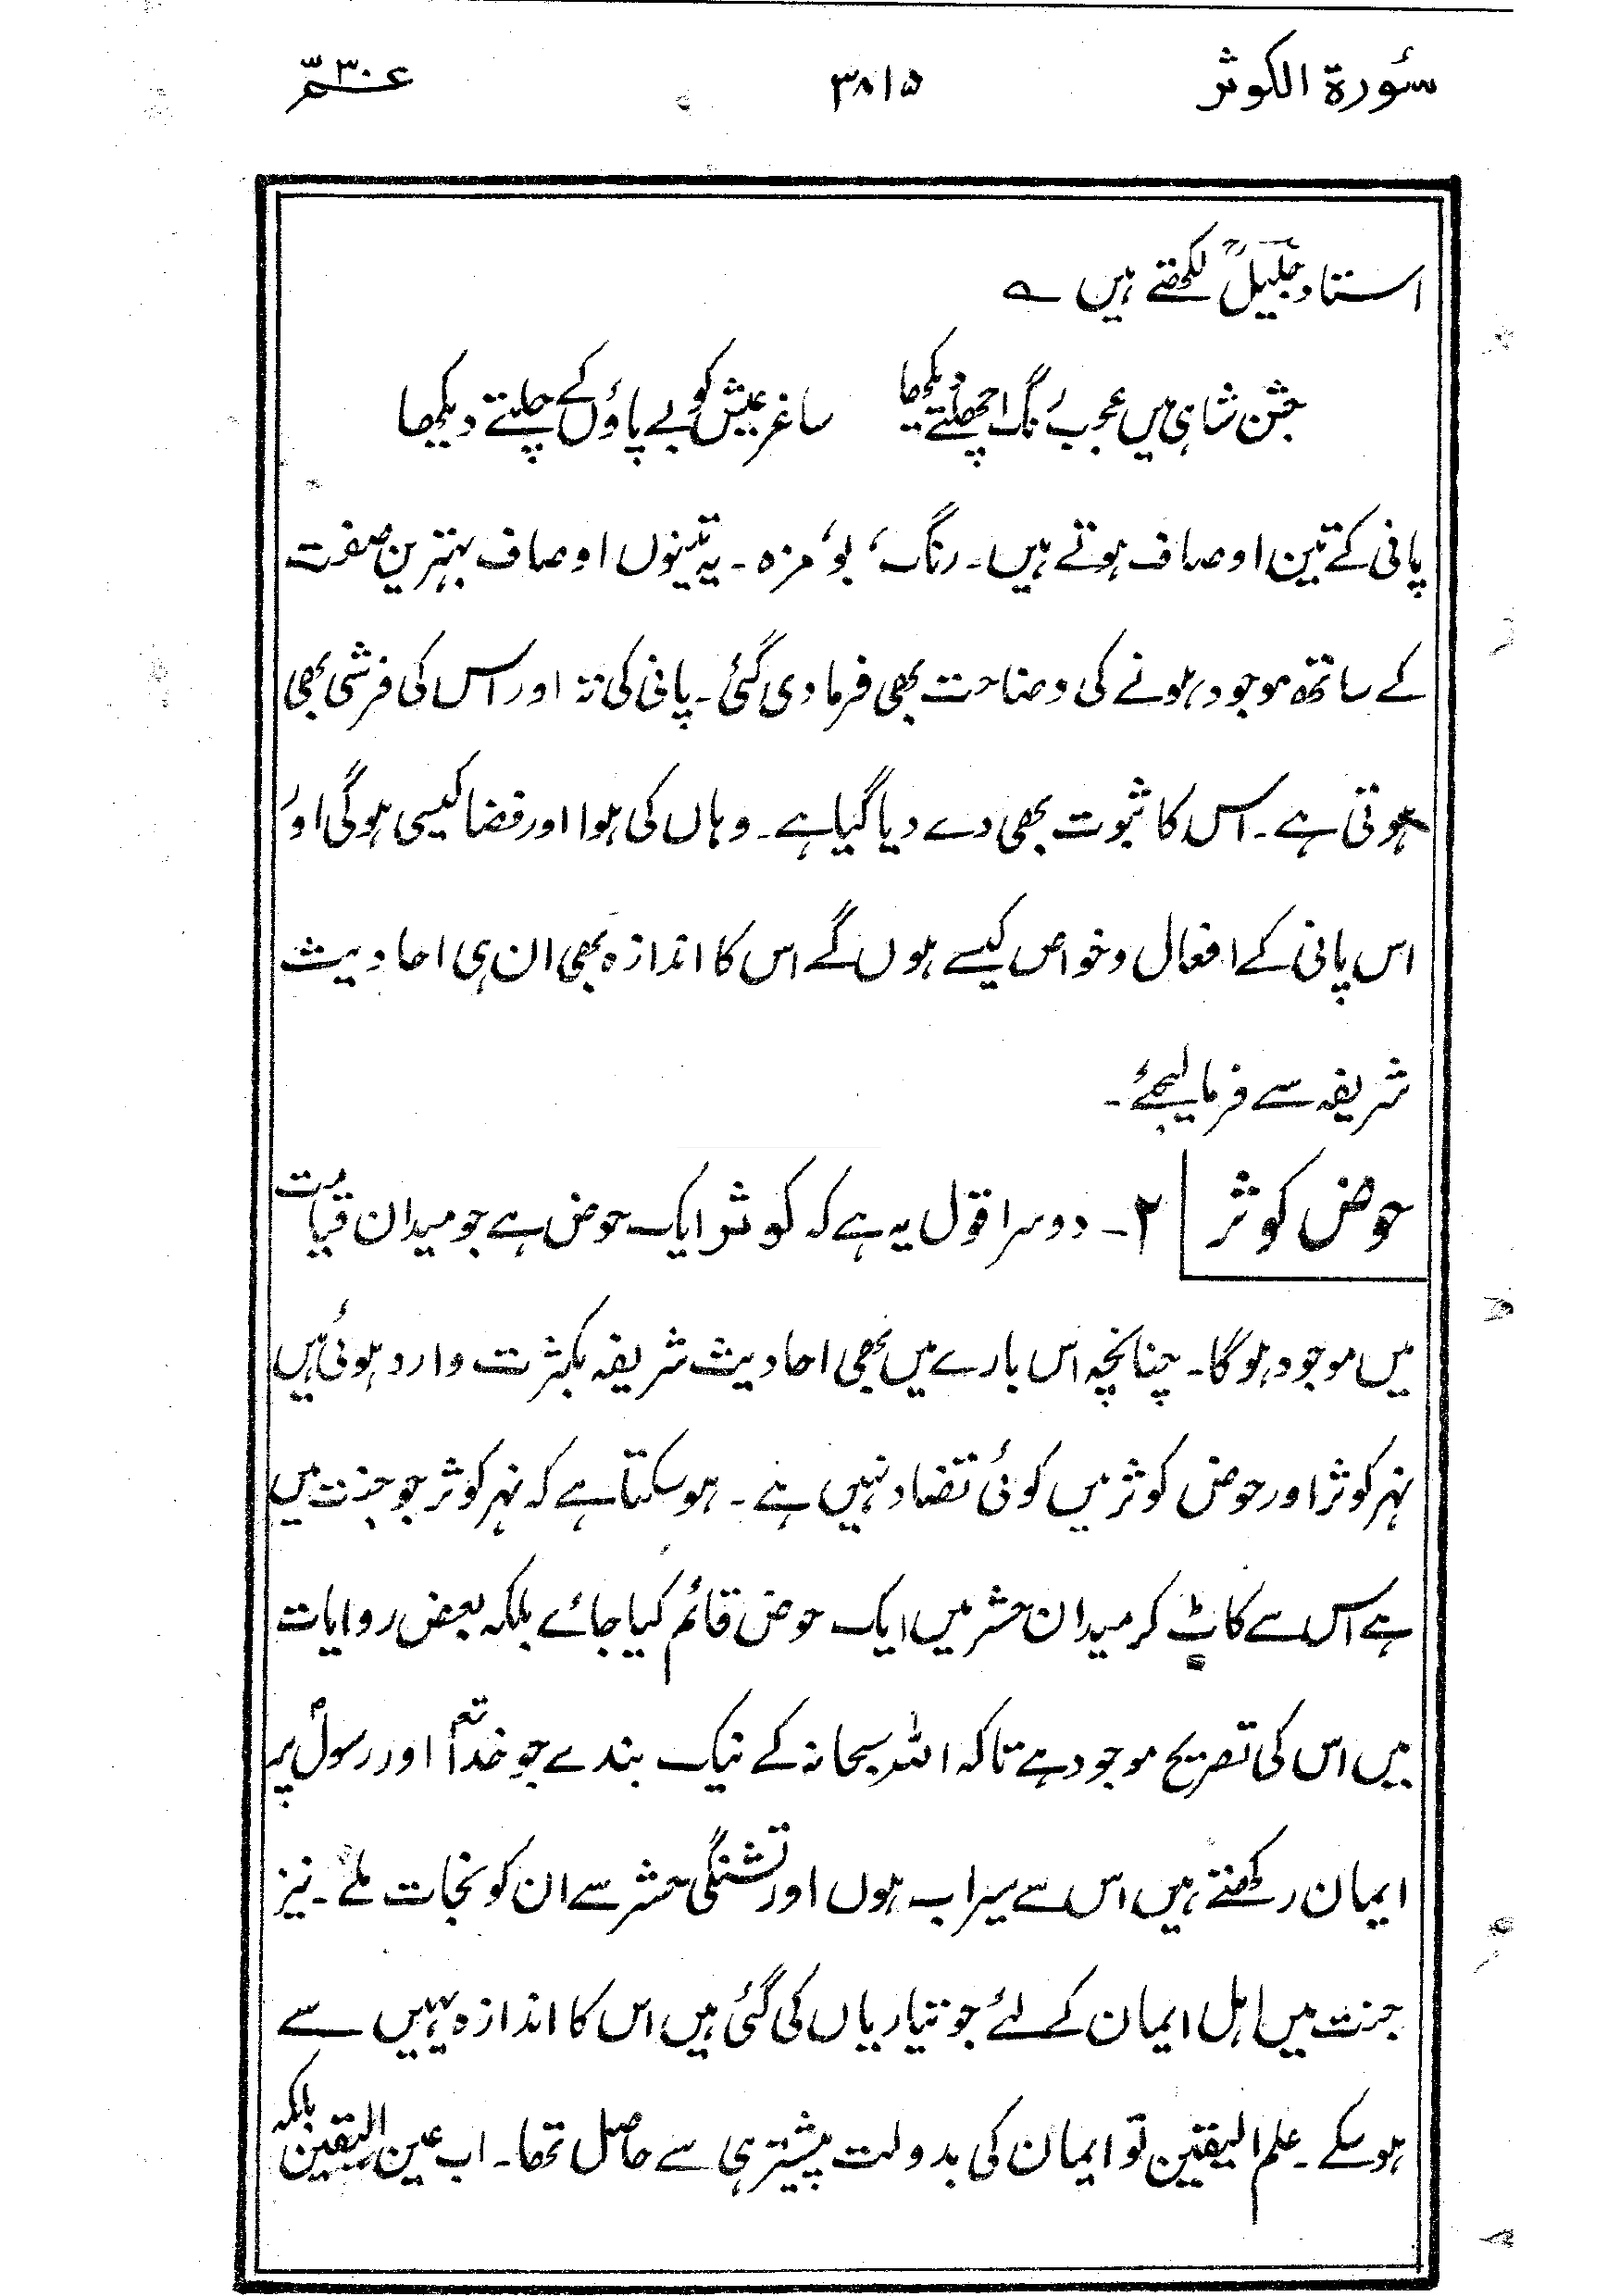 سُورة الکوثر ۳۸۱۵ عمّ ۳۰
استاد جلیلؒ لکھتے ہیں ؎
جشن شاہی میں عجب رنگ اچھلتے دیکھا ساغر عیش کو بے پاؤں کے چلتے دیکھا
پانی کے تین اوصاف ہوتے ہیں۔ رنگ، بو، مزہ۔ یہ تینوں اوصاف بہترین صفت
کے ساتھ موجود ہونے کی وضاحت بھی فرما دی گئی۔ پانی کی تہ اور اس کی فرشی بھی
ہوتی ہے۔ اس کا ثبوت بھی دے دیا گیا ہے۔ وہاں کی ہوا اور فضا کیسی ہوگی اور
اس پانی کے افعال و خواص کیسے ہوں گے اس کا اندازہ بھی ان ہی احادیث
شریفہ سے فرمالیجئے۔
حوض کوثر ۲۔ دوسرا قول یہ ہے کہ کوثر ایک حوض ہے جو میدان قیامت
میں موجود ہوگا۔ چنانچہ اس بارے میں بھی احادیث شریفہ بکثرت وارد ہوئی ہیں
نہر کوثر اور حوض کوثر میں کوئی تضاد نہیں ہے۔ ہوسکتا ہے کہ نہر کوثر جو جنت میں
ہے اس سے کاٹ کر میدان حشر میں ایک حوض قائم کیا جائے بلکہ بعض روایات
میں اس کی تصریح موجود ہے تاکہ اللہ سبحانہ کے نیک بندے جو خداتعؐ اور رسولؐ پر
ایمان رکھتے ہیں اس سے سیراب ہوں اور تشنگی حشر سے ان کو نجات ملے۔ نیز
جنت میں اہل ایمان کے لئے جو تیاریاں کی گئی ہیں اس کا اندازہ یہیں سے
ہوسکے۔ علم الیقین تو ایمان کی بدولت پیشتر ہی سے حاصل تھا۔ اب عین الیقین بلکہ